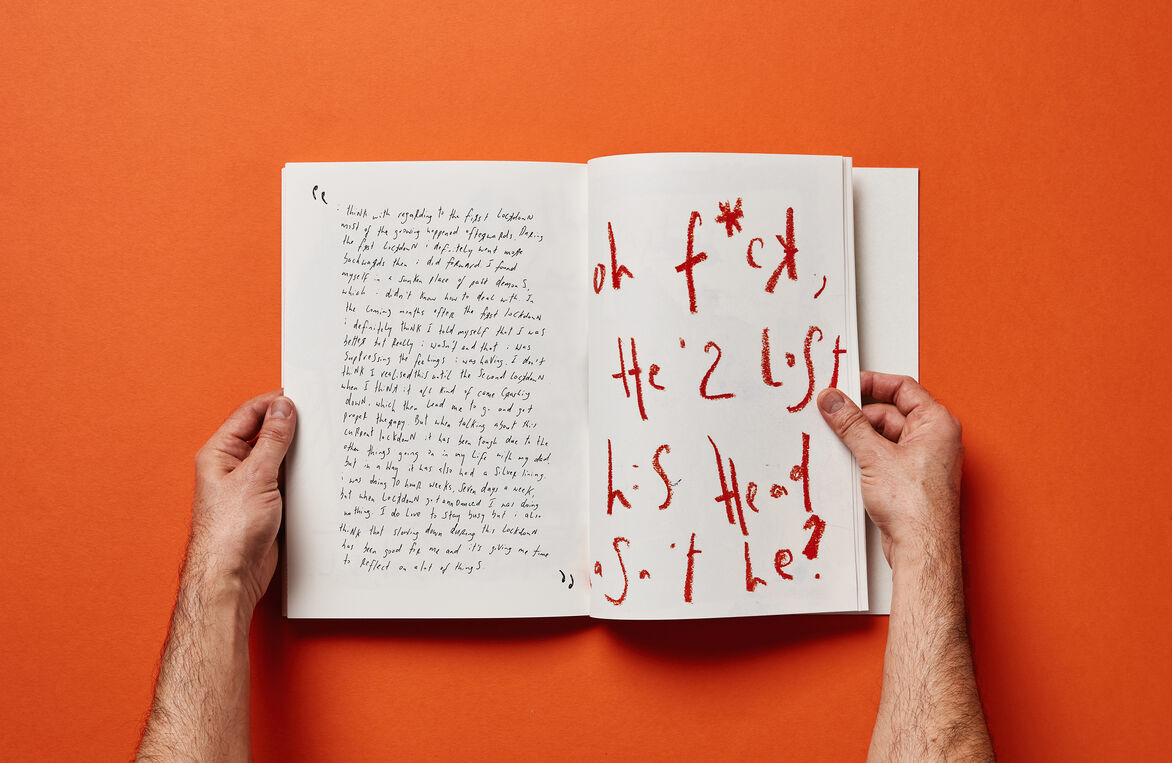 “
i think with regarding to the first Lockdown
most of the growing happened afterwards. During
the first Lockdown i definitely went more
backwards then i did forward. I found
myself in a sunken place of past demons,
which i didn't know how to deal with. In
the coming months after the first Lockdown
i definitely think I told myself that I was
better but really i wasn't and that i was
suppressing the feelings i was having. I don't
think I realised this until the second Lockdown
when I think it all kind of came crashing
down, which then lead me to go and get
proper therapy. But when talking about this
current lockdown it has been tough due to the
other things going on in my life with my dad,
but in a way it has also had a silver lining.
i was doing 70 hour weeks, seven days a week,
but when Lockdown got announced I was doing
nothing. I do love to stay busy but i also
think that slowing down during this Lockdown
has been good for me and it's giving me time
to reflect on a lot of things.
”
oh f*ck,
He's lost
his Head
asn't he?